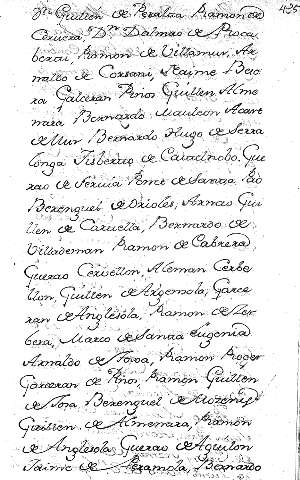 425
Dn Guillen de Peralta Ramon de
Cervera, Dn Dalmao de Roca
berti, Ramon de Villamur, Ar
naldo de Corsani, Jaime
ra Galceran Pinos Guillen Alme
nara Bernardo Mauleon
de Mur Bernardo Hugo de Serra
longa Gisberto de Castelnobo. Gue
rao de Ponce de Santa
Berenguer de Orioles, Arnao Gui
llen de Cartella, Bernardo de
Villademan Ramon de Cabrera
Guerao Cervellon, Aleman Cerbe
llon, Guillen de Argensola, Garce
ran de Anglesola, Ramon de Cer
bera, Marco de Santa Eugenia
Arnaldo de Ramon Roger
Garceran de Pinos, Ramon Guillen
de Berenguel de
Guillen de Almenara, Ramon
de Anglesola Guerao de Aguilon
Jaime de Peramola, Bernardo